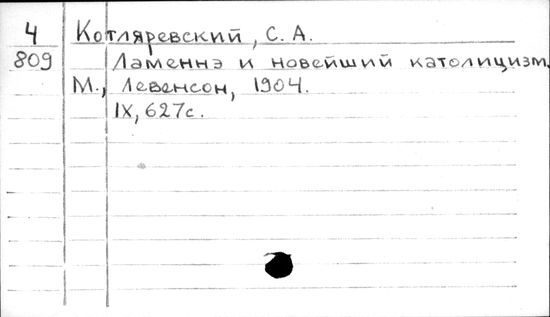 4 Котляревский, С. А.
809 Ламеннэ и новейший католицизм.
М., Левенсон, 1904.
IX, 627с.